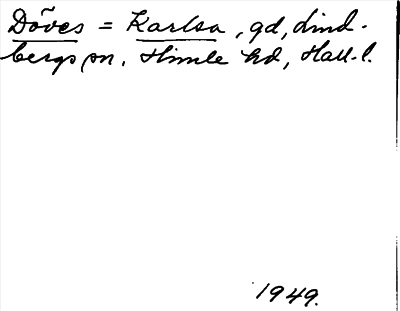 Döves = Karlsa, gd, Lind-
bergs sn, Himle hd, Hall. l.
1949.